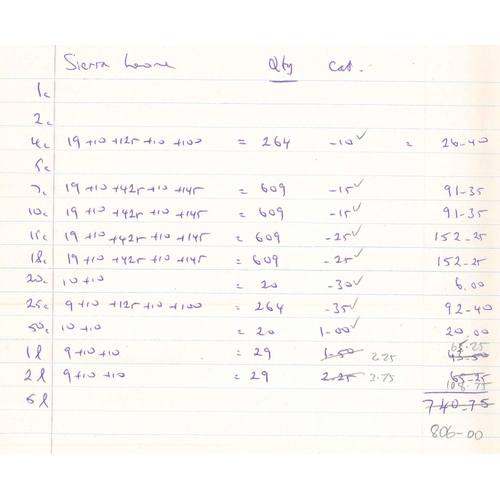 Sierra Leone Qty Cat.
1c
2c
4c 19+10+125+10+100 = 264 -10✓ = 26-40
5c
7c 19+10+425+10+145 = 609 -15✓ 91-35
10c 19+10+425+10+145 = 609 -15✓ 91-35
15c 19+10+425+10+145 = 609 -25✓ 152-25
18c 19+10+425+10+145 = 609 -25✓ 152-25
20c 10+10 = 20 -30✓ 6.00
25c 9+10+125+10+100 = 264 -35✓ 92-40
50c 10+10 = 20 1-00✓ 20.00
65.25
1l 9+10+10 = 29 1-50 2.25 43-50
2l 9+10+10 = 29 2-25 3.75 65-25
108.75
5l 740.75
806-00